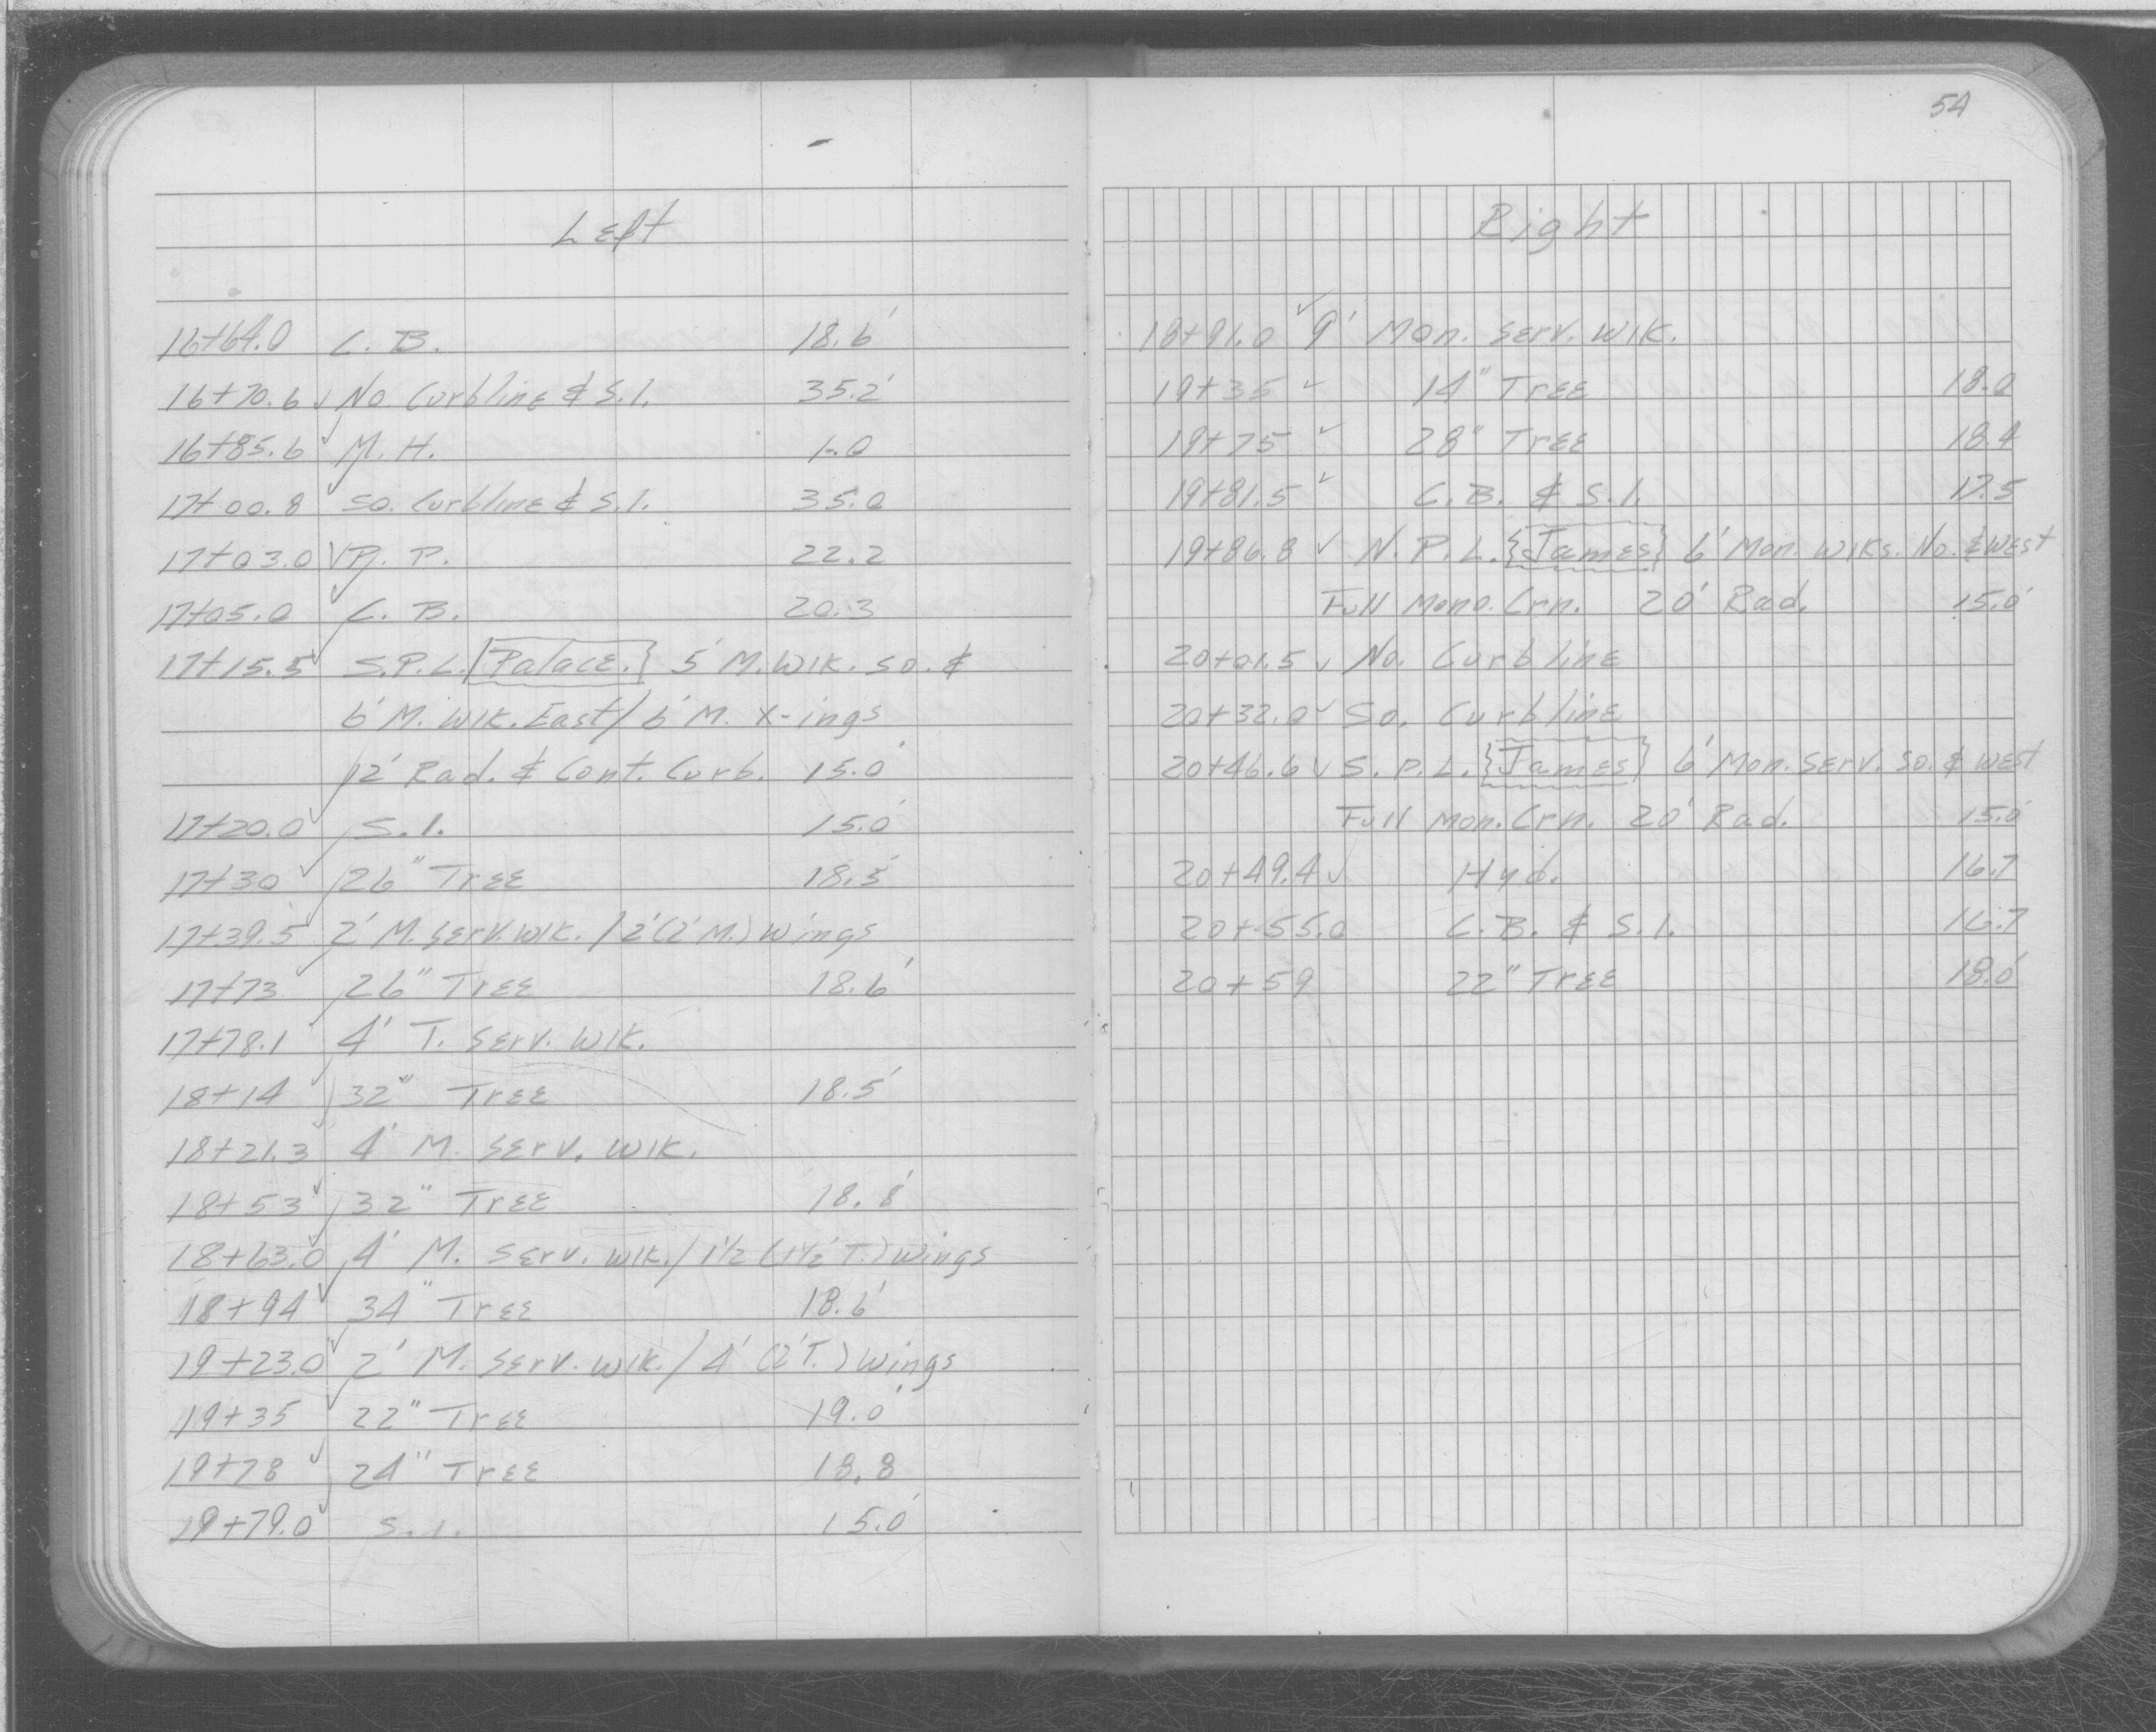 54
Left
16+64.0 C. B. 18.6'
16+70.6 ✓ No. Curbline & S.I. 35.2'
16+85.6 ✓ M. H. 1.0
17+00.8 ✓ So. Curbline & S.I. 35.0
17+03.0 ✓ P. P. 22.2
17+05.0 ✓ C. B. 20.3
17+15.5 ✓ S.P.L. {Palace.} 5' M. Wlk. So. &
6' M. Wlk. East / 6' M. X-ings
12' Rad. & Cont. Curb. 15.0'
17+20.0 ✓ S.I. 15.0'
17+30 ✓ 26" Tree 18.5'
17+39.5 ✓ 2' M. Serv. Wlk. / 2' (2' M.) Wings
17+73 ✓ 26" Tree 18.6'
17+78.1 ✓ 4' T. Serv. Wlk.
18+14 ✓ 32" Tree 18.5'
18+21.3 ✓ 4' M. Serv. Wlk.
18+53 ✓ 32" Tree 18.8'
18+63.0 ✓ 4' M. Serv. Wlk. / 1½ (1½' T.) Wings
18+94 ✓ 34" Tree 18.6'
19+23.0 ✓ 2' M. Serv. Wlk. / 4' (2' T.) Wings
19+35 ✓ 22" Tree 19.0'
19+78 ✓ 24" Tree 18.8
19+79.0 ✓ S.I. 15.0'
Right
18+91.0 ✓ 9' Mon. Serv. Wlk.
19+35 ✓ 14" Tree 18.0
19+75 ✓ 28" Tree 18.4
19+81.5 ✓ C.B. & S.I. 17.5
19+86.8 ✓ N. P. L. {James} 6' Mon. Wlks. No. & West
Full Mono. Crn. 20' Rad. 15.0'
20+01.5 ✓ No. Curbline
20+32.0 ✓ So. Curbline
20+46.6 ✓ S. P. L. {James} 6' Mon. Serv. So. & West
Full Mon. Crn. 20' Rad. 15.0'
20+49.4 ✓ Hyd. 16.7
20+55.0 C.B. & S.I. 16.7
20+59 22" Tree 18.0'